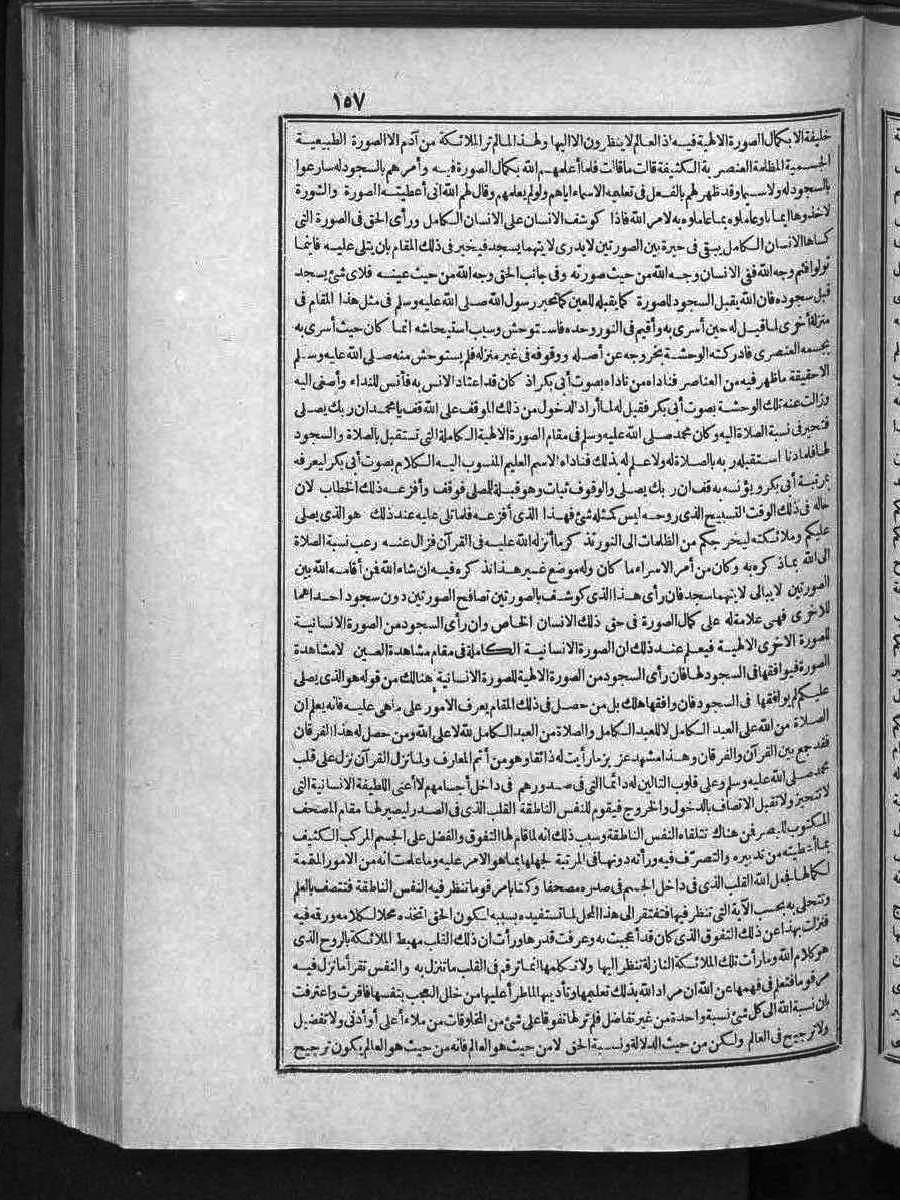 ١٥٧
خليفة الا بكمال الصورة الالهية فيه اذ العالم لا ينظرون الا اليها ولهذا لما لم تر الملائكة من آدم الا الصورة الطبيعية
الجسمية المظلمة العنصرية الكثيفة قالت ما قالت فلما أعلمهم الله بكمال الصورة فيه وأمرهم بالسجود له سارعوا
بالسجود له ولا سيما وقد ظهر لهم بالفعل فى تعليمه الاسماء اياهم ولو لم يعلمهم وقال لهم الله انى أعطيته الصورة والسورة
لاخذوها ايمانا وعاملوه بما عاملوه به لامر الله فاذا كوشف الانسان على الانسان الكامل ورأى الحق فى الصورة التى
كساها الانسان الكامل يبقى فى حيرة بين الصورتين لا يدرى لايتهما يسجد فيخير فى ذلك المقام بان يتلى عليه فاينما
تولوا فثم وجه الله ففى الانسان وجه الله من حيث صورته وفى جانب الحق وجه الله من حيث عينه فلاى شئ يسجد
قبل سجوده فان الله يقبل السجود للصورة كما يقبله للعين كما تحير رسول الله صلى الله عليه وسلم فى مثل هذا المقام فى
منزلة أخرى لما قيل له حين أسرى به وأقيم فى النور وحده فاستوحش وسبب استيحاشه انما كان حيث أسرى به
بجسمه العنصرى فادركته الوحشة بخروجه عن أصله ووقوفه فى غير منزله فلم يستوحش منه صلى الله عليه وسلم
الا حقيقة ما ظهر فيه من العناصر فناداه من ناداه بصوت أبى بكر اذ كان قد اعتاد الانس به فأنس للنداء وأصغى اليه
وزالت عنه تلك الوحشة بصوت أبى بكر فقيل له لما أراد الدخول من ذلك الموقف على الله قف يا محمد ان ربك يصلى
فتحير فى نسبة الصلاة اليه وكان محمد صلى الله عليه وسلم فى مقام الصورة الالهية الكاملة التى تستقبل بالصلاة والسجود
لها فلما دنا استقبله ربه بالصلاة له ولا علم له بذلك فناداه الاسم العليم المنسوب اليه الكلام بصوت أبى بكر ليعرفه
بمرتبة أبى بكر ويؤنسه به قف ان ربك يصلى والوقوف ثبات وهو قبلة للصلى فوقف وأفزعه ذلك الخطاب لان
حاله فى ذلك الوقت التسبيح الذى روحه ليس كمثله شئ فهذا الذى أفزعه فلما تلى عليه عند ذلك هو الذى يصلى
عليكم وملائكته ليخرجكم من الظلمات الى النور تذكر ما أنزله الله عليه فى القرآن فزال عنه رعب نسبة الصلاة
الى الله بما ذكره به وكان من أمر الاسراء ما كان وله موضع غير هذا نذكره فيه ان شاء الله فمن أقامه الله بين
الصورتين لا يبالى لايتهما سجد فان رأى هذا الذى كوشف بالصورتين تصافح الصورتين دون سجود احداهما
للاخرى فهى علامة له على كمال الصورة فى حق ذلك الانسان الخاص وان رأى السجود من الصورة الانسانية
للصورة الاخرى الالهية فيعلم عند ذلك ان الصورة الانسانية الكاملة فى مقام مشاهدة العين لا مشاهدة
الصورة فيوافقها فى السجود لها فان رأى السجود من الصورة الالهية للصورة الانسانية هنالك من قوله هو الذى يصلى
عليكم لم يوافقها فى السجود فان وافقها هلك بل من حصل فى ذلك المقام يعرف الامور على ما هى عليه فانه يعلم ان
الصلاة من الله على العبد الكامل لا للعبد الكامل والصلاة من العبد الكامل لله لا على الله ومن حصل له هذا الفرقان
فقد جمع بين القرآن والفرقان وهذا مشهد عزيز ما رأيت له ذائقا وهو من أتم المعارف ولما نزل القرآن نزل على قلب
محمد صلى الله عليه وسلم وعلى قلوب التالين له دائما التى فى صدورهم فى داخل أجسامهم لا أعنى اللطيفة الانسانية التى
لا تتحيز ولا تقبل الاتصاف بالدخول والخروج فيقوم للنفس الناطقة القلب الذى فى الصدر ليصير لها مقام المصحف
المكتوب للبصر فمن هناك تتلقاه النفس الناطقة وسبب ذلك انه لما قام لها التفوق والفضل على الجسم المركب الكثيف
بما أعطيته من تدبيره والتصرف فيه ورأته دونها فى المرتبة لجهلها بما هو الامر عليه وما علمت انه من الامور المتممة
لكمالها فجعل الله القلب الذى فى داخل الجسم فى صدره مصحفا وكتابا مرقوما تنظر فيه النفس الناطقة فتتصف بالعلم
وتتحلى به بحسب الآية التى تنظر فيها فتفتقر الى هذا المحل لما تستفيده بسببه لكون الحق اتخذه محلا لكلامه ورقمه فيه
فنزلت بهذا عن ذلك التفوق الذى كان قد أعجبت به وعرفت قدرها ورأت ان ذلك القلب مهبط الملائكة بالروح الذى
هو كلام الله وما رأت تلك الملائكة النازلة تنظر اليها ولا تكلمها انما ترقم فى القلب ما تنزل به والنفس تقرأ ما نزل فيه
مرقوما فتعلم فى فهمها عن الله ان مراد الله بذلك تعليمها وتأديبها لما طرأ عليها من خلل العجب بنفسها فاقرت واعترفت
بان نسبة الله الى كل شئ نسبة واحدة من غير تفاضل فلم تر لها تفوقا على شئ من المخلوقات من ملاء أعلى أو أدنى ولا تفضيل
ولا ترجيح فى العالم ولكن من حيث الدلالة ونسبة الحق لا من حيث هو العالم فانه من حيث هو العالم يكون ترجيح